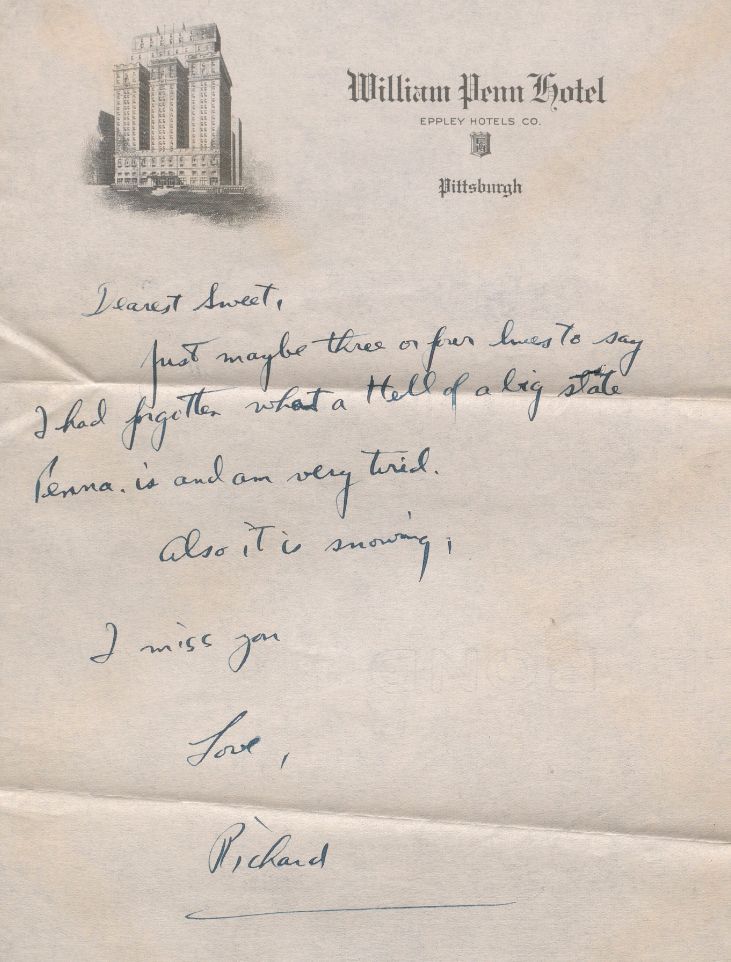 William Penn Hotel
EPPLEY HOTELS CO.
Pittsburgh
Dearest Sweet,
Just maybe three or four lines to say
I had forgotten what a Hell of a big state
Penna. is and am very tired.
Also it is snowing;
I miss you
Love,
Richard